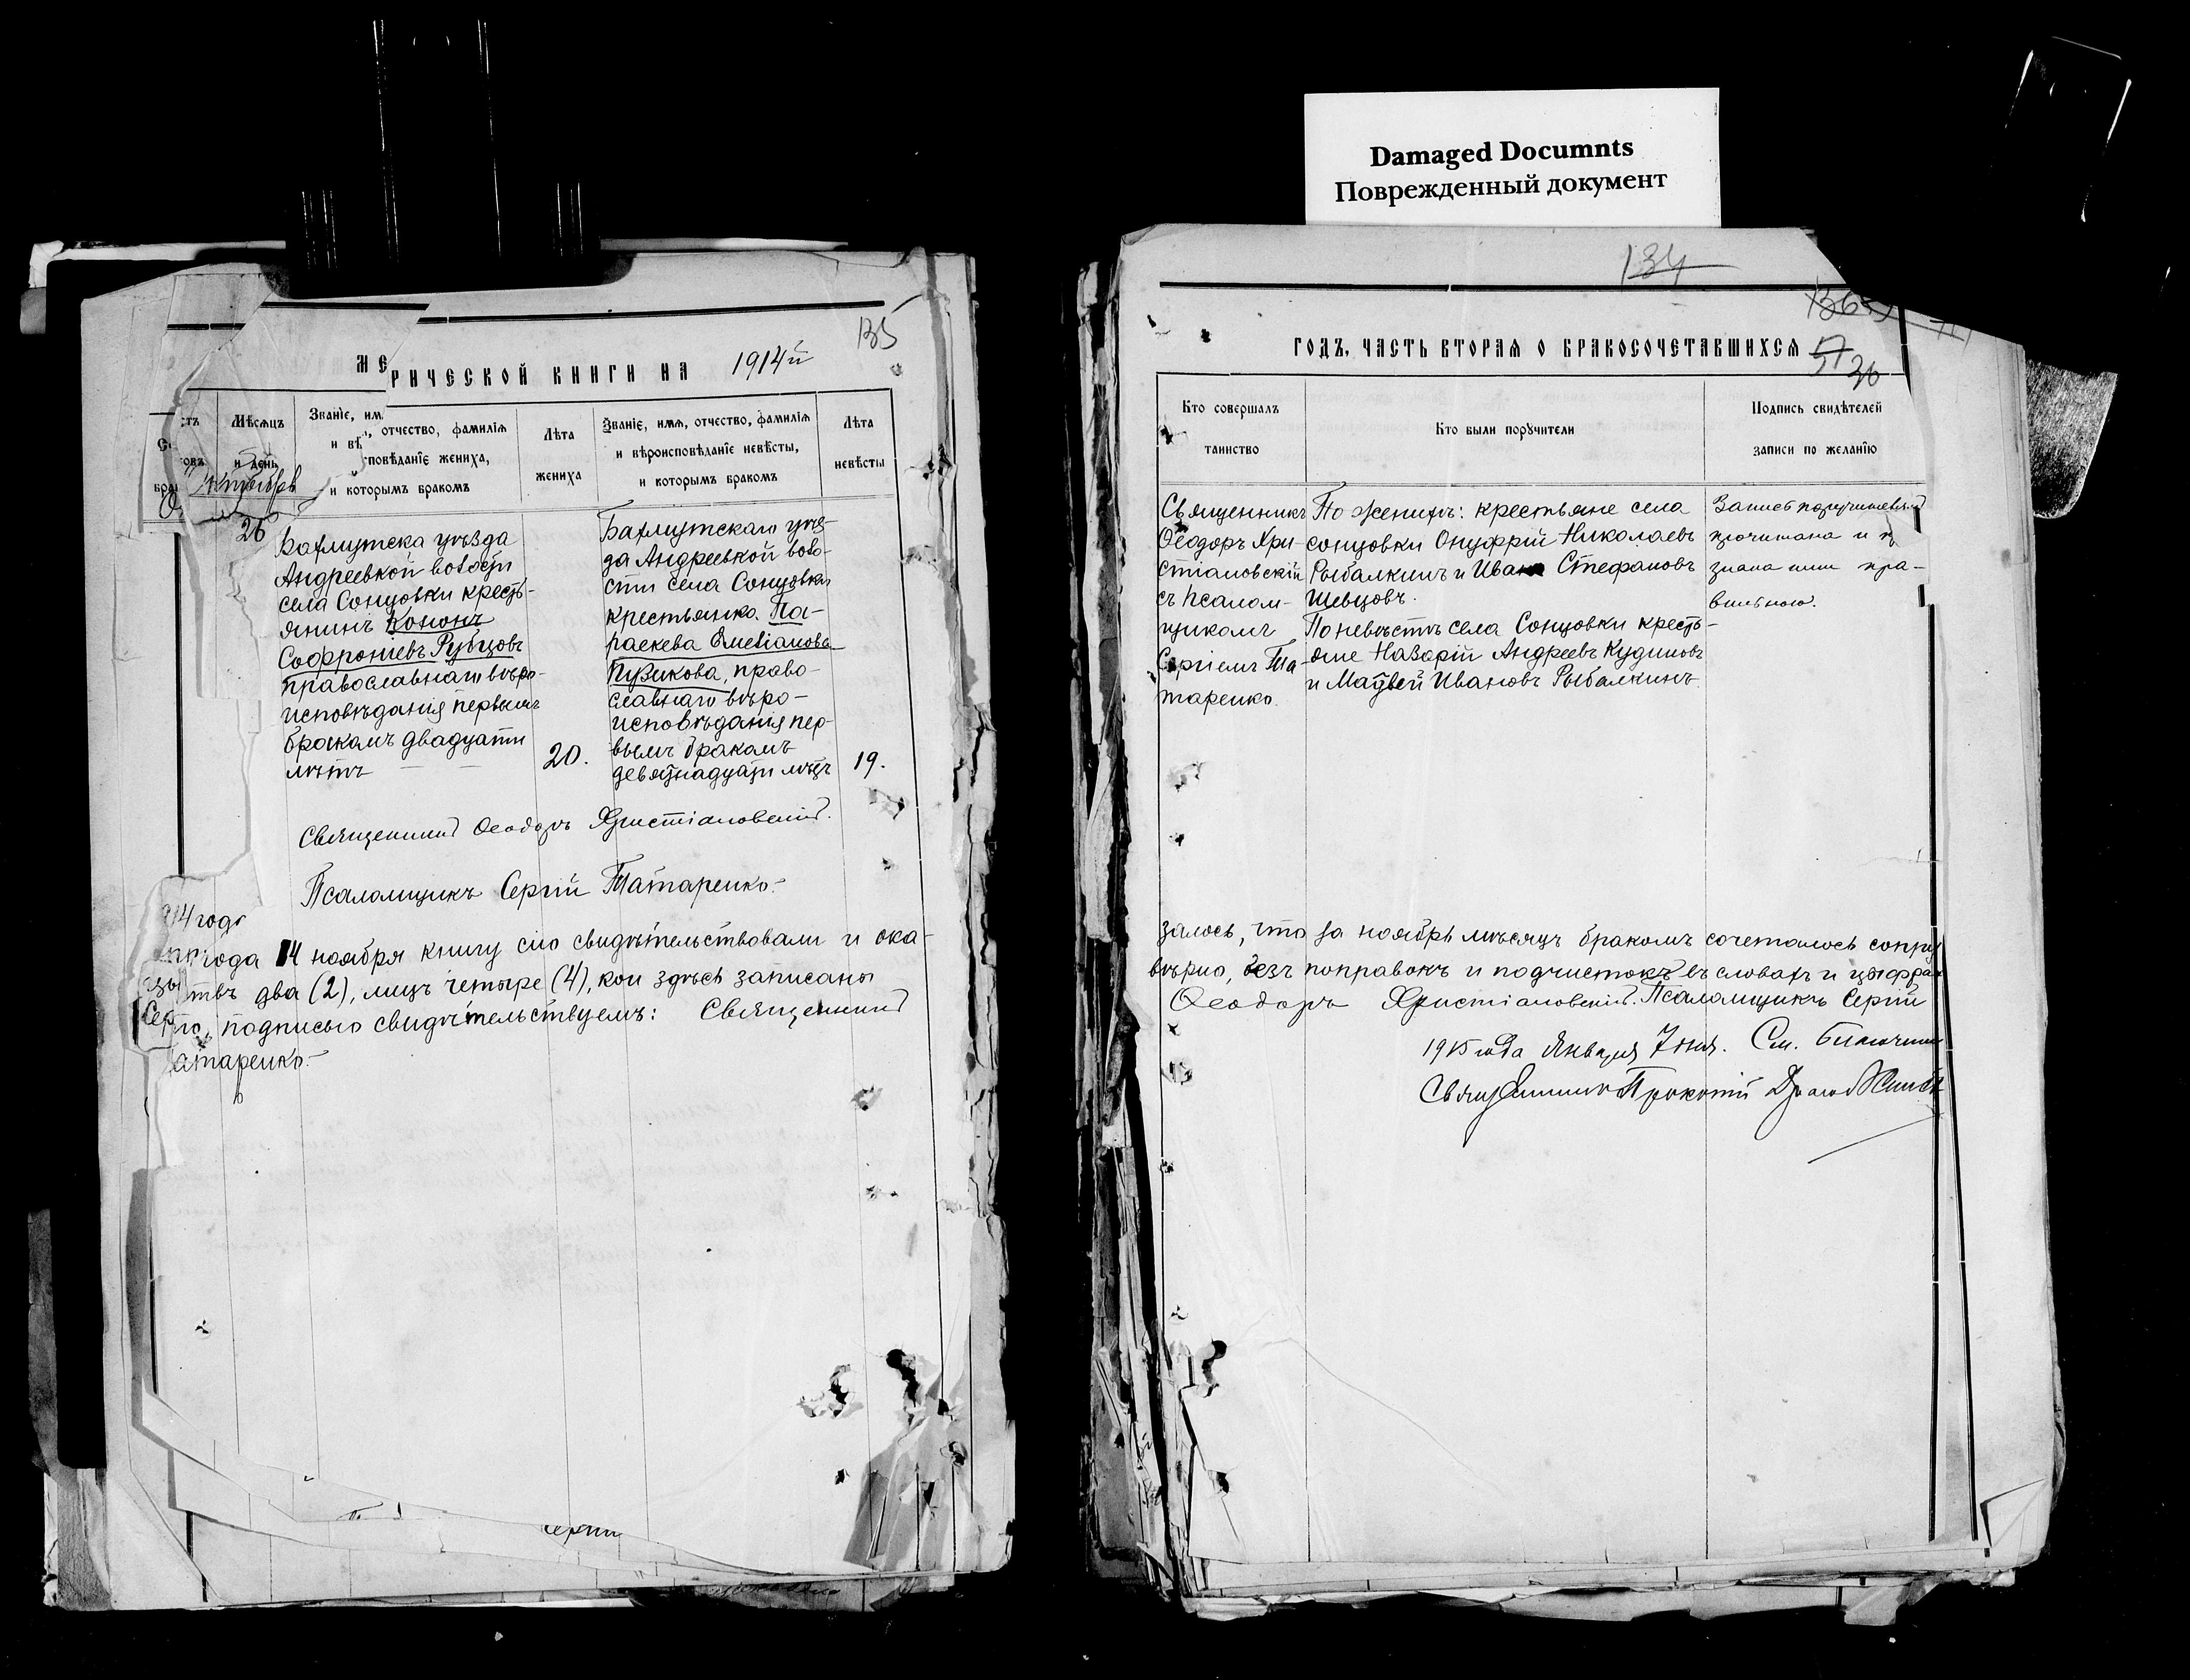 Damaged Documnts
Поврежденный документ
135
МЕ
РИЧЕСКОЙ КНИГИ НА 1914й
Мѣсяцъ
и день
Званїе, им
, отчество, фамилїя
и вѣ
сповѣданїе жениха,
и которымъ бракомъ
Лѣта
жениха
Званїе, имя, отчество, фамилїя
и вѣроисповѣданїе невѣсты,
и которымъ бракомъ
Лѣта
невѣсты
26
Бахмутска уѣзда
Андреевкой волости
села Сонцовки кресть-
янинъ Кононъ
Софроніевъ Рубцовъ
православнаго вѣро-
исповѣданія первымъ
бракомъ двадцати
лѣтъ
20.
Бахмутскаго уѣз-
да Андреевкой воло-
сти села Сонцовки
крестьянка Па-
раскева Емеліанова
Пузикова, право-
славнаго вѣро-
исповѣданія пер-
вымъ бракомъ
девятнадцати лѣтъ
19.
Священникъ Ѳеодоръ Христіановскій.
Псаломщикъ Сергій Татаренко.
914 года
года 14 ноября книгу сію свидѣтельствовали и ока-
ствъ два (2), лицъ четыре (4), кои здѣсь записаны
подписью свидѣтельствуемъ: Священникъ
атаренко.
Сергій
134
ГОДЪ, ЧАСТЬ ВТОРАЯ О БРАКОСОЧЕТАВШИХСЯ
36
Кто совершалъ
таинство
Кто были порꙋчители
Подпись свидѣтелей
записи по желанїю
Священникъ
Ѳеодоръ Хри-
стіановскій
съ псалом-
щикомъ
Сергіемъ Та-
таренко.
По женихѣ: крестьяне села
Сонцовки Онуфрій Николаевъ
Рыбалкинъ и Иванъ Стефановъ
Шевцовъ.
По невѣстѣ села Сонцовки кресть-
яне Назарій Андреевъ Кудиновъ
и Матвей Ивановъ Рыбалкинъ.
Запись поручителямъ
прочитана и
знана ими пра-
вильною.
залось, что за ноябрь мѣсяцъ бракомъ сочеталось супру
вѣрно, безъ поправокъ и подчистокъ въ словахъ и цыфра
Ѳеодоръ Христіановскій. Псаломщикъ Сергій
1915 года Января 7 дня. См. Благочин
Священникъ Прокопій